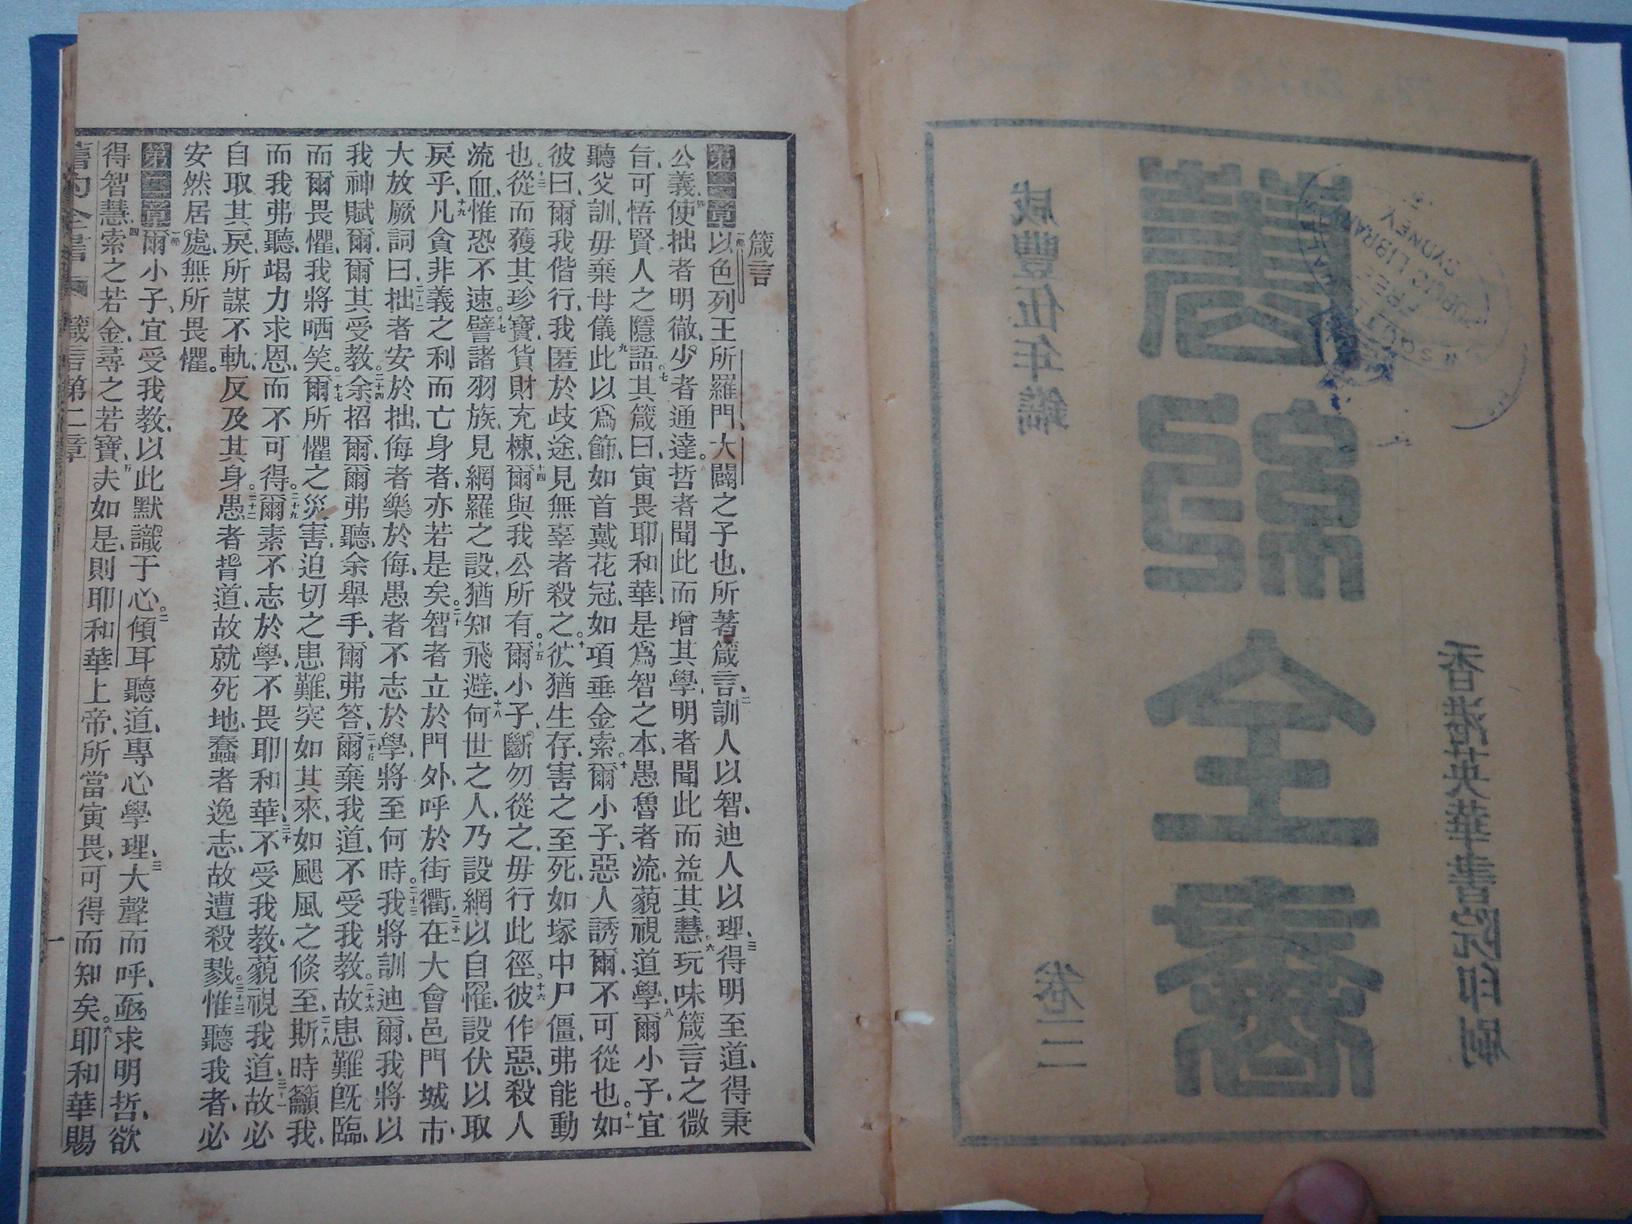 咸豐伍年鐫
卷三
舊約全書
香港英華書院印刷
FREE
PUBLIC LIBRARY
SYDNEY
箴言
第一章 以色列王所羅門大闢之子也、所著箴言、訓人以智、迪人以理、得明至道、得秉
公義、使拙者明徹、少者通達。哲者聞此而增其學、明者聞此而益其慧。玩味箴言之微
旨、可悟賢人之隱語。其箴曰、寅畏耶和華、是爲智之本、愚魯者流、藐視道學。爾小子、宜
聽父訓、毋棄母儀、此以爲飾、如首戴花冠、如項垂金索。爾小子、惡人誘爾、不可從也。如
彼曰、爾我偕行、我匿於歧途、見無辜者殺之。彼猶生存、害之至死、如塚中尸僵、弗能動
也。從而獲其珍寶、貨財充棟、爾與我公所有。爾小子、斷勿從之、毋行此徑。彼作惡、殺人
流血、惟恐不速。譬諸羽族、見網羅之設、猶知飛避、何世之人、乃設網以自罹、設伏以取
戾乎。凡貪非義之利而亡身者、亦若是矣。智者立於門外、呼於街衢、在大會邑門城市、
大放厥詞曰、拙者安於拙、侮者樂於侮、愚者不志於學、將至何時。我將訓迪爾、我將以
我神賦爾、爾其受教。余招爾、爾弗聽、余舉手、爾弗答、爾棄我道、不受我教。故患難旣臨、
而爾畏懼、我將哂笑。爾所懼之災害、迫切之患難、突如其來、如颶風之倐至、斯時籲我、
而我弗聽、竭力求恩、而不可得。爾素不志於學、不畏耶和華、不受我教、藐視我道、故必
自取其戾、所謀不軌、反及其身。愚者背道、故就死地、蠢者逸志、故遭殺戮。惟聽我者、必
安然居處、無所畏懼。
第二章 爾小子、宜受我教、以此默識于心。傾耳聽道、專心學理、大聲而呼、亟求明哲、欲
得智慧、索之若金、尋之若寶、夫如是、則耶和華上帝、所當寅畏、可得而知矣。耶和華賜
舊約全書 箴言第二章 一